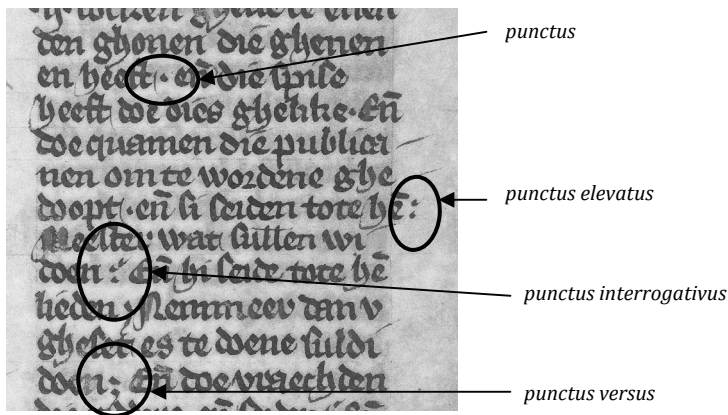 den ghonen die ghenen
en heeft · en̄ die spise
heeft doe dies ghelike · En̄
doe quamen die publica
nen om te wordene ghe
doopt · en̄ si seiden tote hē :
Meester wat sullen wi
doen : En̄ hi seide tote hē
lieden Nemmeer dan v
gheset es te doene suldi
doen ; En̄ doe vraechden
punctus
punctus elevatus
punctus interrogativus
punctus versus